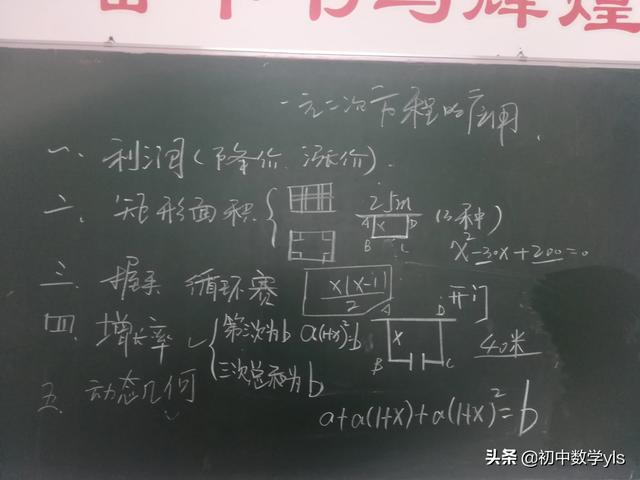 奋 书写辉煌
一元二次方程的应用.
一、利润(下降价、涨价).
二、矩形面积{ 25m (3种)
A X D
B C
x²-30x+200=0
三、握手 循环赛 x(x-1)/2
四、增长率 { 第三次为b a(1+x)²=b
三次总和为b
A D 开门
X
B C 40米
五、动态几何
a+a(1+x)+a(1+x)²=b
头条 @初中数学yls